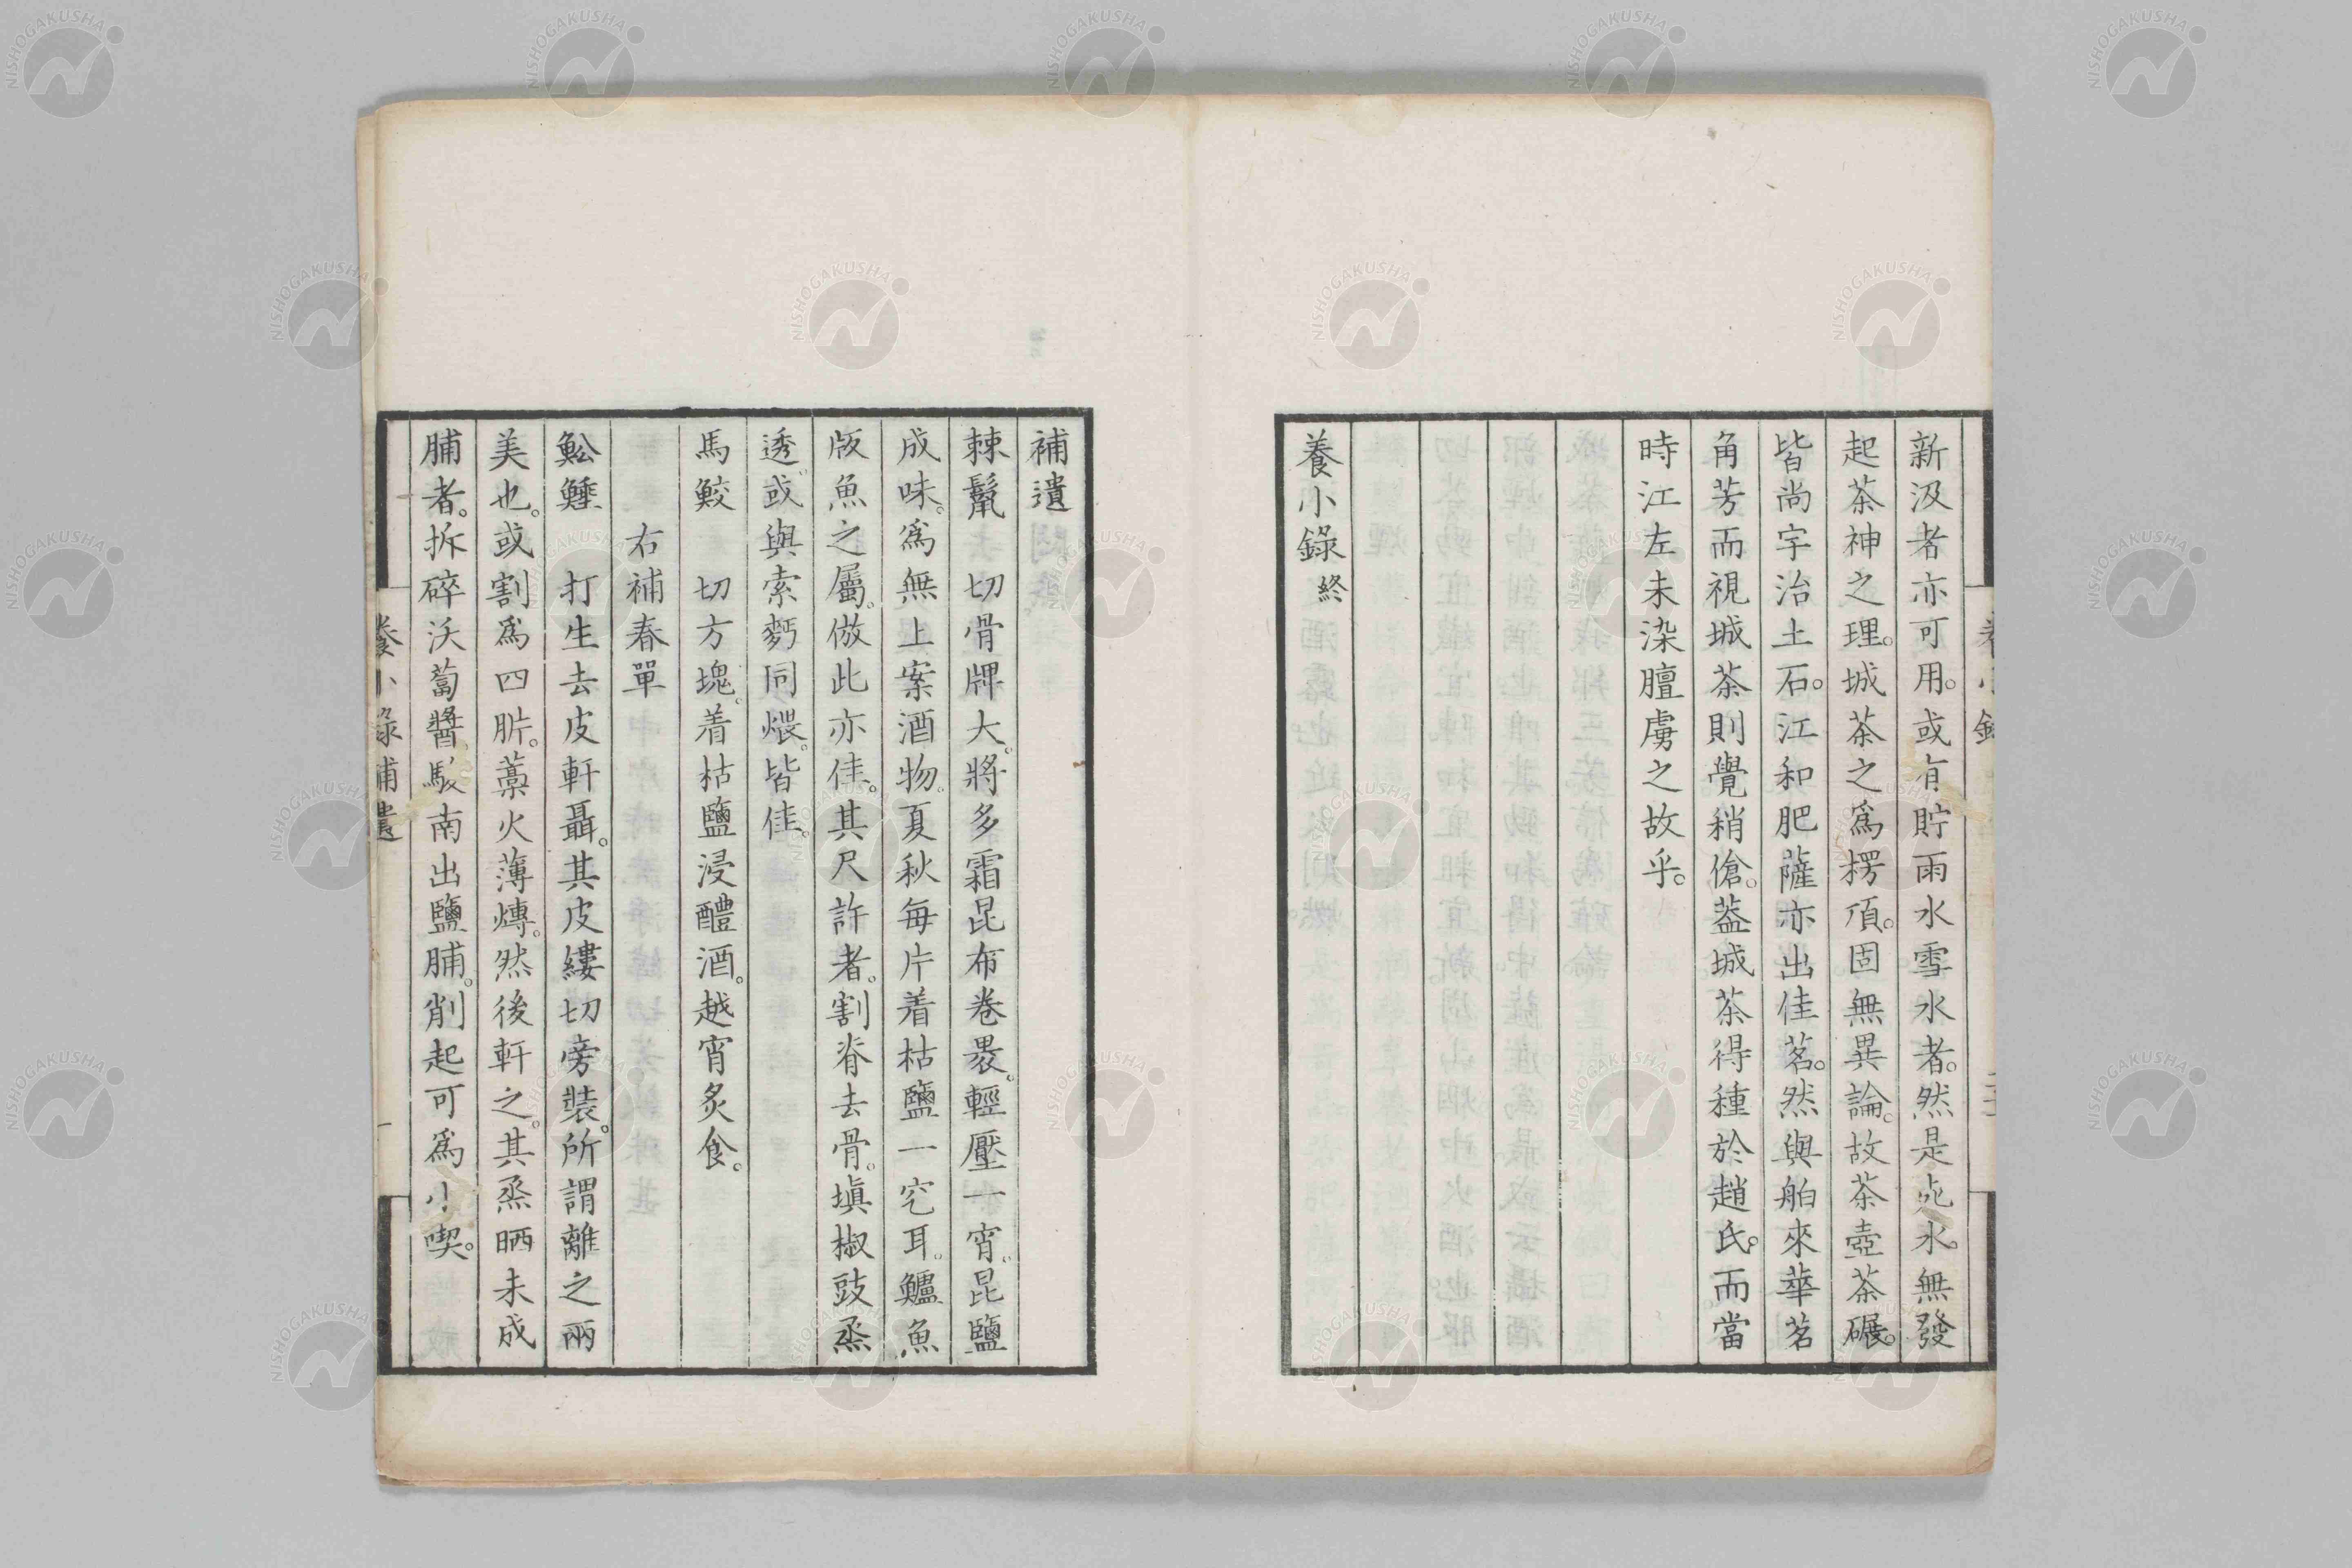 新汲者亦可用。或有貯雨水雪水者。然是死水。無發
起茶神之理。城茶之爲楞頂。固無異論。故茶壺茶碾。
皆尚宇治土石。江和肥薩亦出佳茗。然與舶來華茗
角芳而視城茶則覺稍傖。蓋城茶得種於趙氏。而當
時江左未染膻虜之故乎。
養小錄終
補遺
棘鬣　切骨牌大。將多霜昆布卷褁。輕壓一宵。昆鹽
成味。爲無上案酒物。夏秋每片着枯鹽一穵耳。鱸魚
版魚之屬。倣此亦佳。其尺許者。割脊去骨。塡椒豉烝
透。或與索麪同煨。皆佳。
馬鮫　切方塊。着枯鹽浸醴酒。越宵炙食。
右補春單
魿鱣　打生去皮軒聶。其皮縷切旁裝。所謂離之兩
美也。或割爲四䏑。藁火薄煿。然後軒之。其烝晒未成
脯者。拆碎沃蔔醬。駿南出鹽脯。削起可爲小喫。
養小錄補遺　一